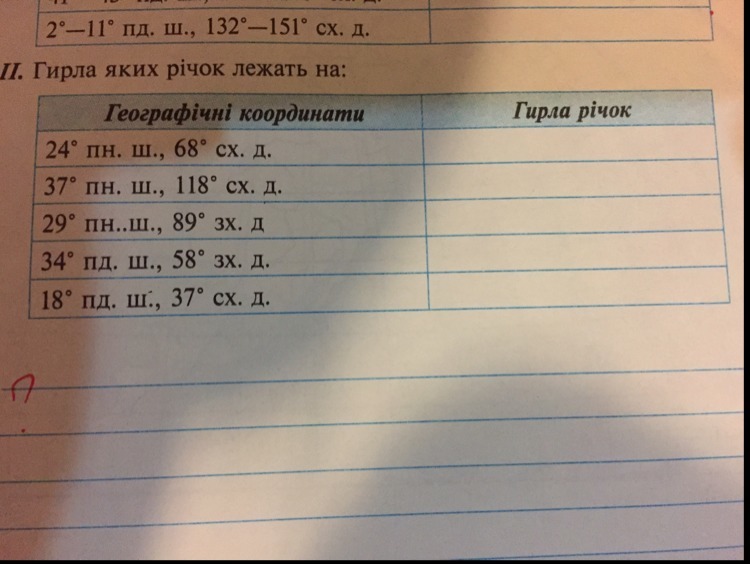 2°—11° пд. ш., 132°—151° сх. д.
II. Гирла яких річок лежать на:
Географічні координати Гирла річок
24° пн. ш., 68° сх. д.
37° пн. ш., 118° сх. д.
29° пн..ш., 89° зх. д
34° пд. ш., 58° зх. д.
18° пд. ш., 37° сх. д.